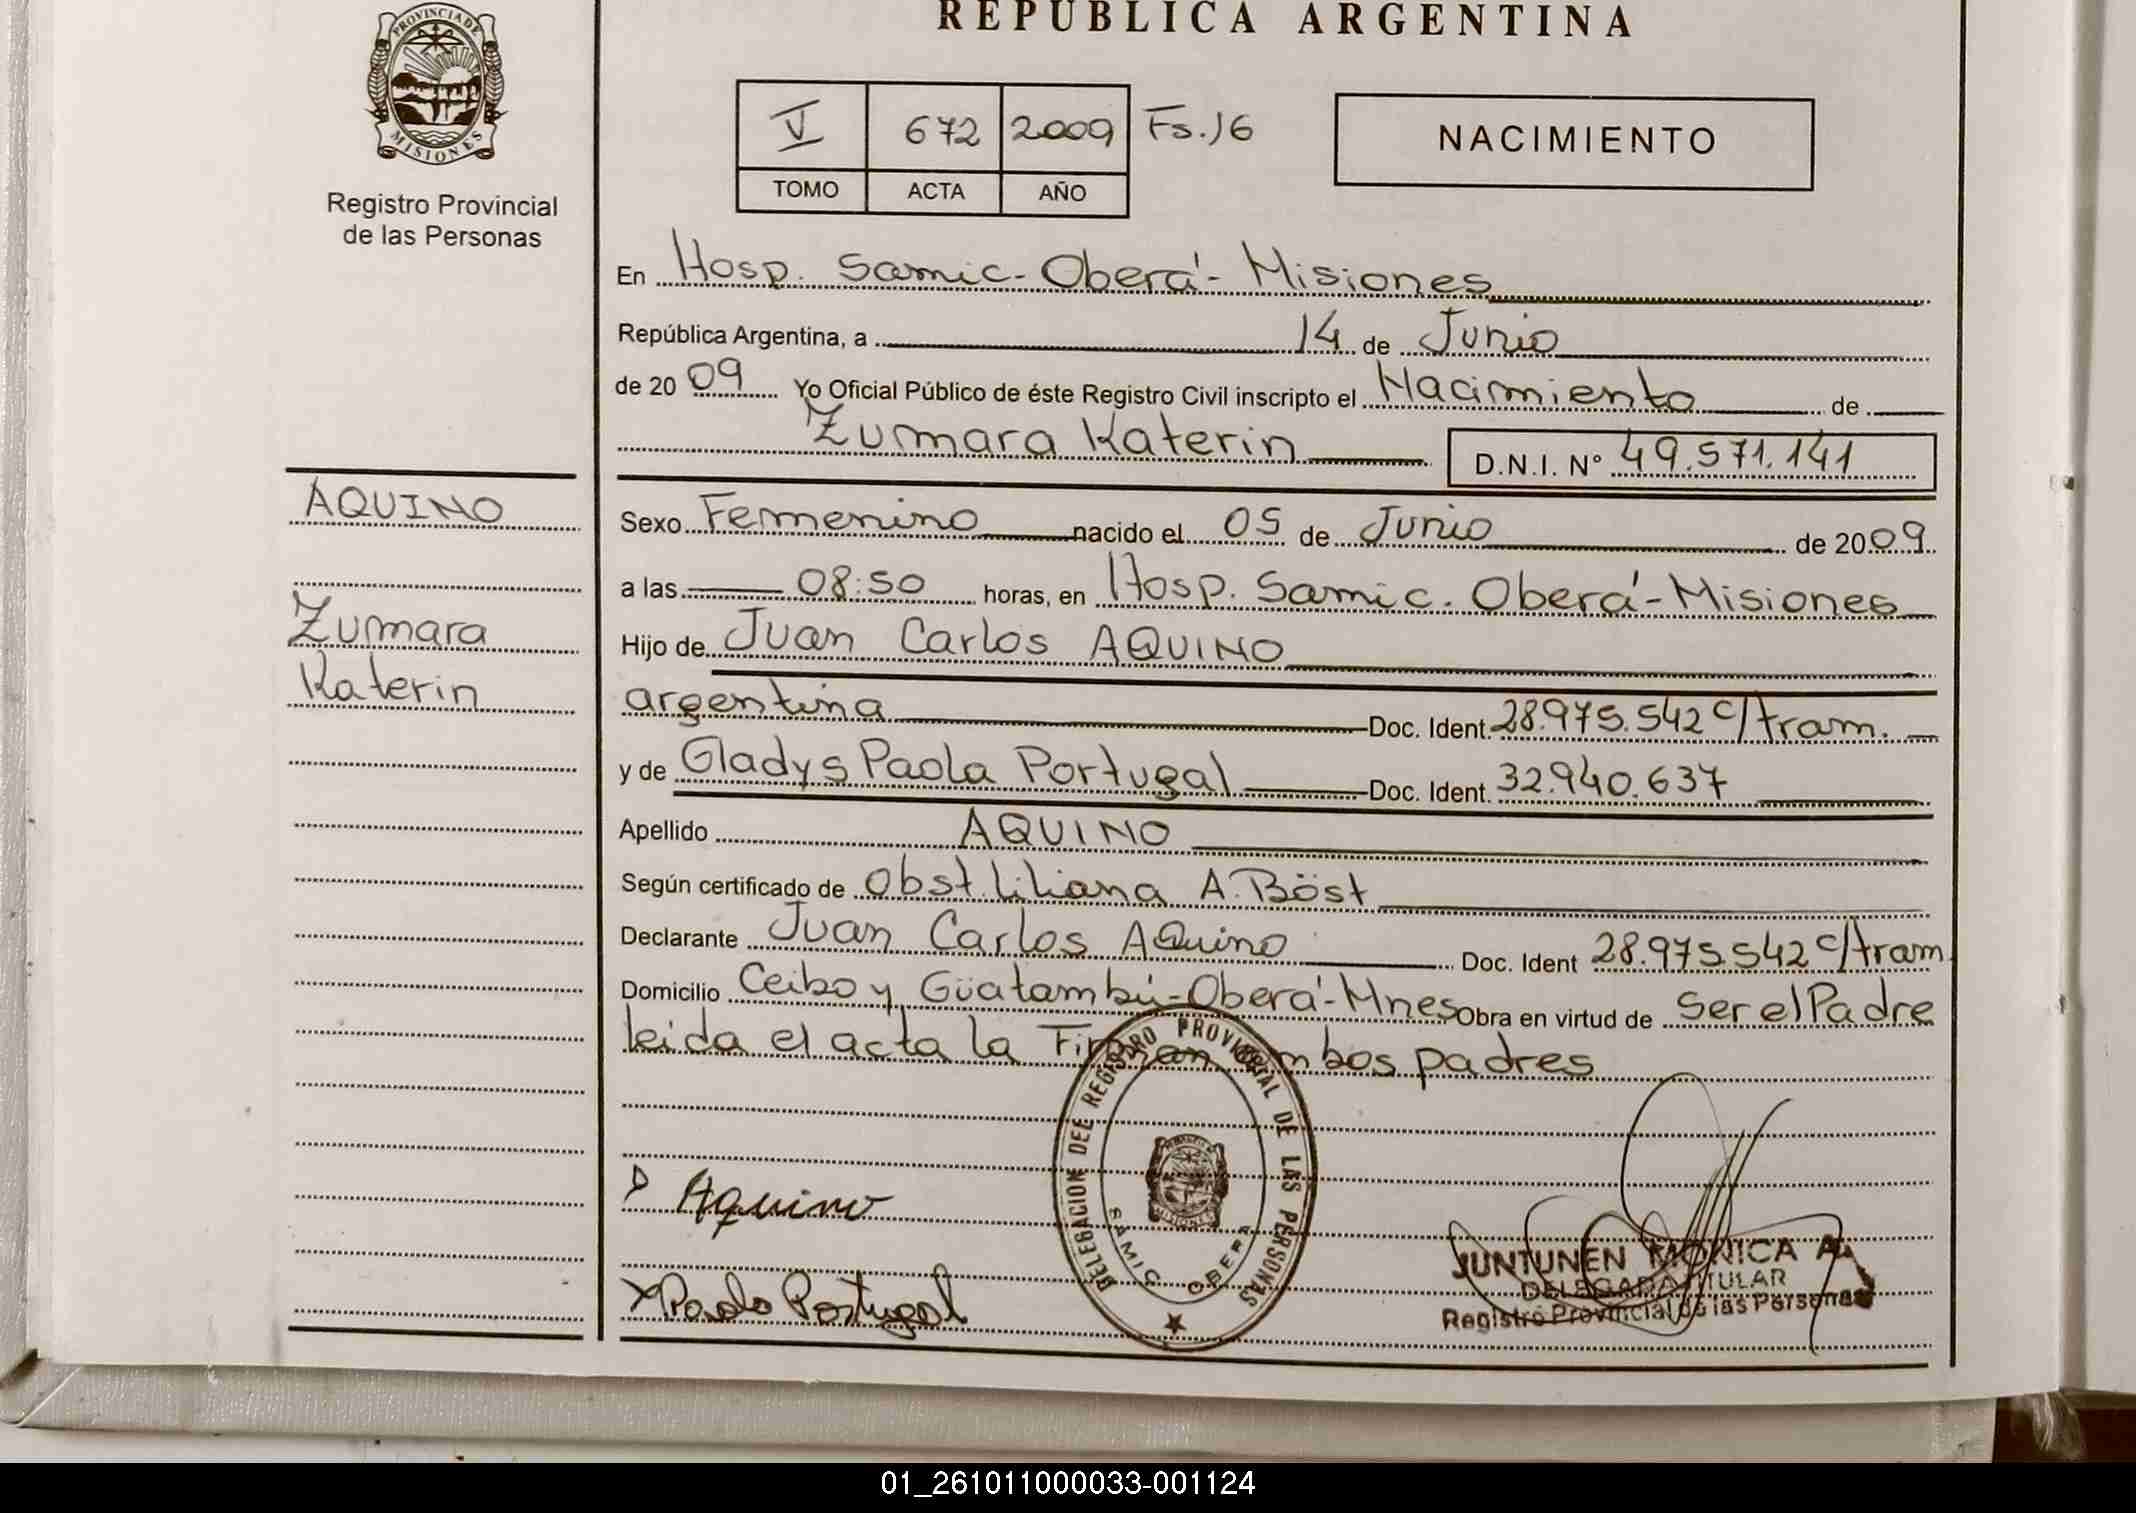 PROVINCIA DE
MISIONES
Registro Provincial
de las Personas
REPUBLICA ARGENTINA
V 672 2009 Fs.16
TOMO ACTA AÑO
NACIMIENTO
En Hosp. Samic - Oberá - Misiones
República Argentina, a 14 de Junio
de 2009 Yo Oficial Público de éste Registro Civil inscripto el Nacimiento de
Zumara Katerin D.N.I. Nº 49.571.141
AQUINO
Zumara
Katerin
Sexo Femenino nacido el 05 de Junio de 2009
a las 08:50 horas, en Hosp. Samic. Oberá - Misiones
Hijo de Juan Carlos AQUINO
argentina Doc. Ident. 28.975.542 c/tram.
y de Gladys Paola Portugal Doc. Ident. 32.940.637
Apellido AQUINO
Según certificado de Obst. Liliana A. Böst
Declarante Juan Carlos AQuino Doc. Ident 28.975.542 c/tram.
Domicilio Ceibo y Güatambú - Oberá - Mnes Obra en virtud de Ser el Padre
leida el acta la Firman ambos padres
DELEGACION DEL REGISTRO PROVINCIAL DE LAS PERSONAS
SAMIC OBERA
MISIONES
Aquino
x Paola Portugal
JUNTUNEN MONICA A.
DELEGADA TITULAR
Registro Provincial de las Personas
01_261011000033-001124